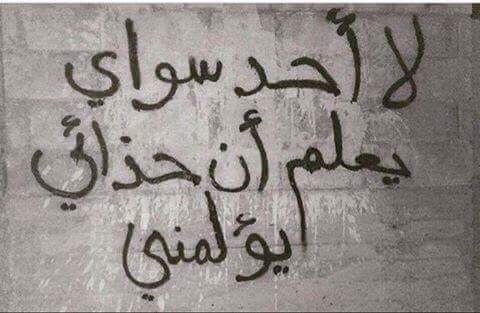 لا أحد سواي
يعلم أن حذائي
يؤلمني